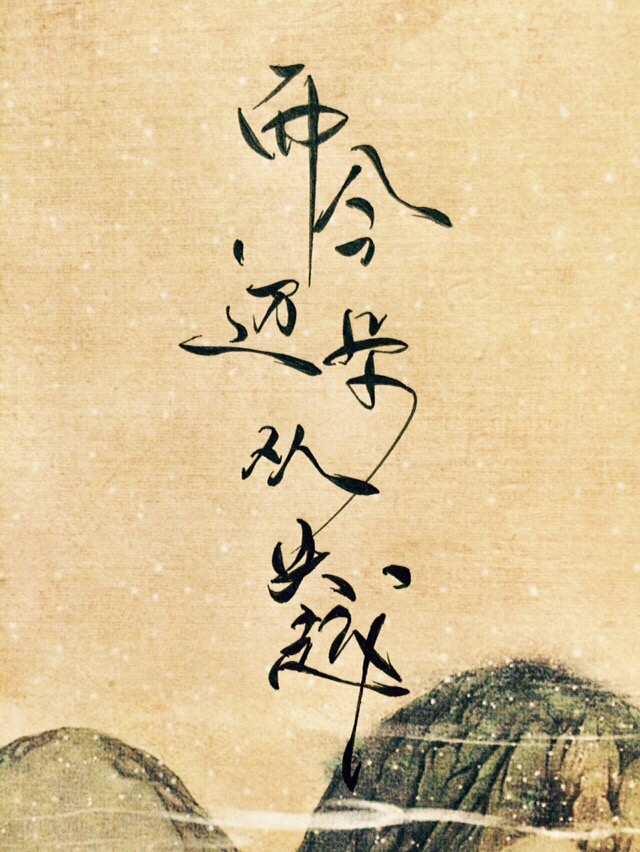 而今迈步从头越